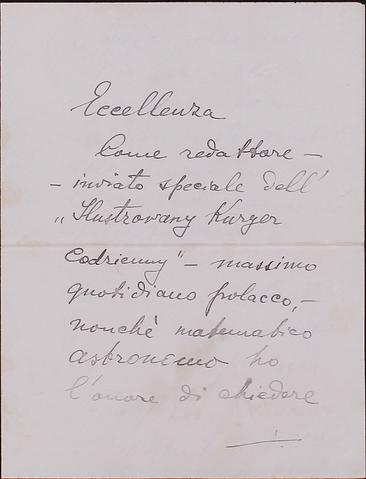 Eccellenza
Come redattore –
– inviato speciale dell'
„Ilustrowany Kurger
Codzienny" – massimo
quotidiano polacco, –
nonchè matematico
astronomo ho
l'onore di chiedere